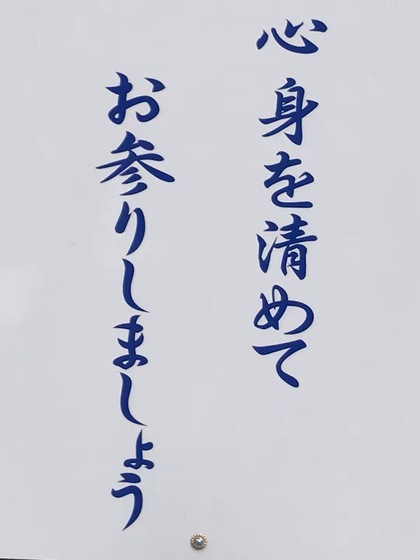 心身を清めて
お参りしましょう